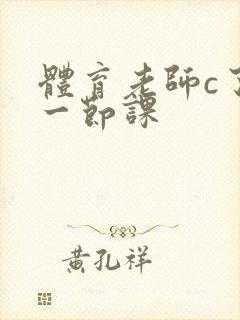 體育老師c了
一節課
黃孔祥